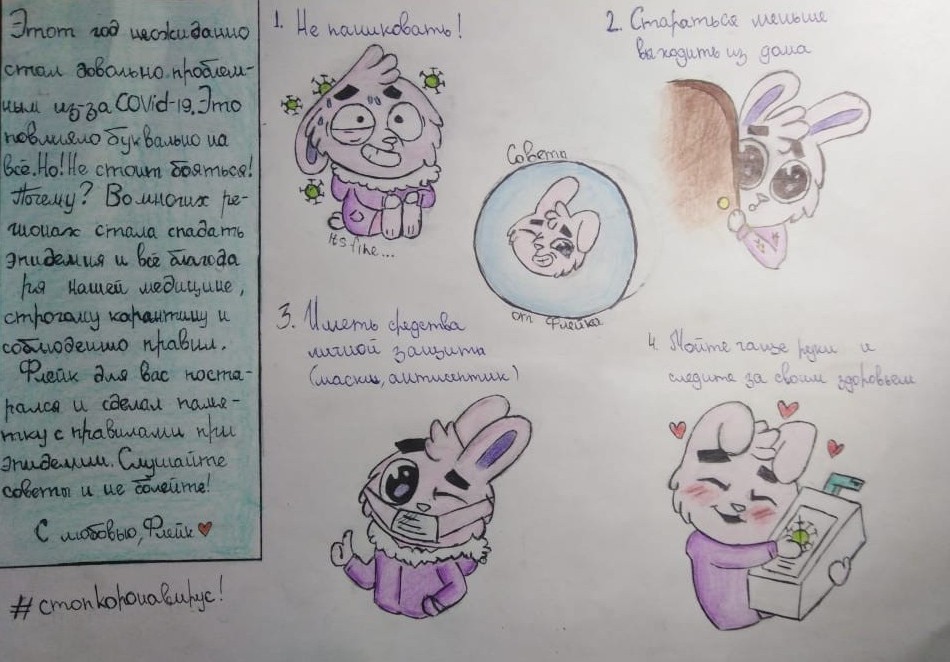 Этот год неожиданно
стал довольно проблем-
ным из-за COVid-19. Это
повлияло буквально на
всё. Но! Не стоит бояться!
Почему? Во многих ре-
гионах стала спадать
эпидемия и всё благода
ря нашей медицине,
строгому карантину и
соблюдению правил.
Флейк для вас поста-
рался и сделал памя-
тку с правилами при
эпидемии. Слушайте
советы и не болейте!
С любовью, Флейк
#стопкоронавирус!
1. Не паниковать!
It's fine...
2. Стараться меньше
выходить из дома
Советы
от Флейка
3. Иметь средства
личной защиты
(маски, антисептик)
4. Мойте чаще руки и
следите за своим здоровьем